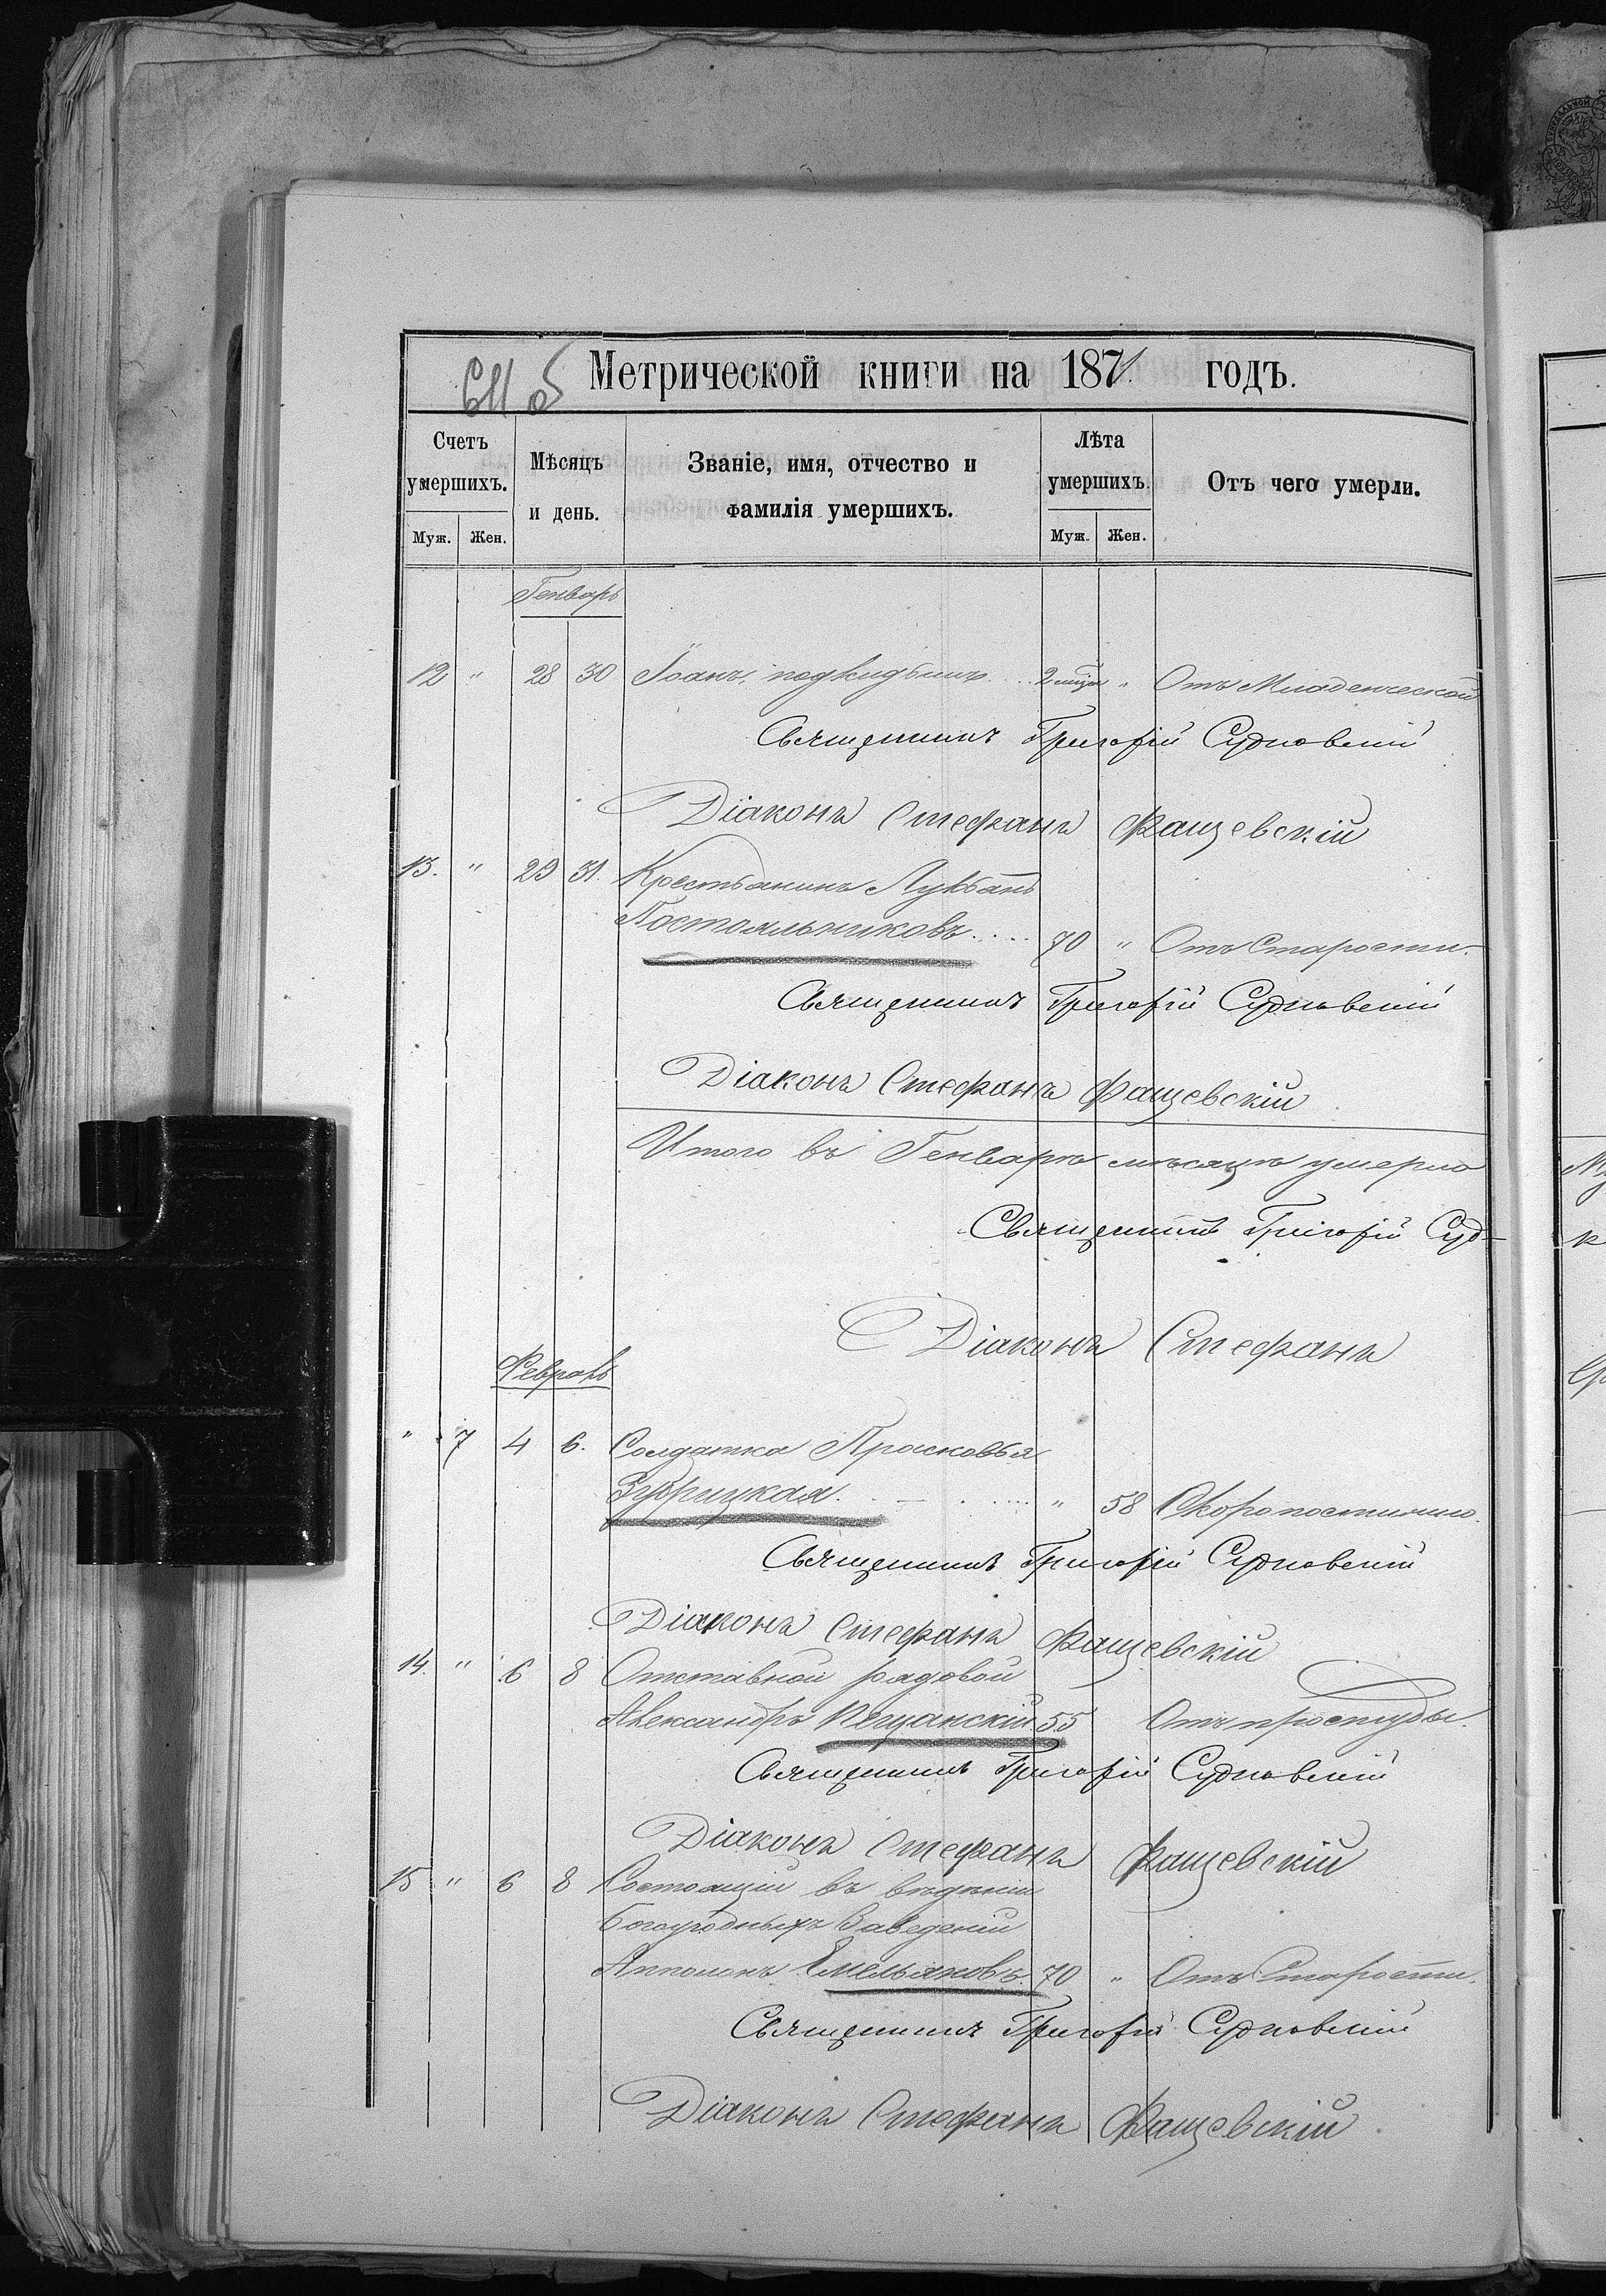 611 об
Метрической книги на 1871 годъ.
Счетъ умершихъ.
Муж. Жен.
Мѣсяцъ и день.
Званіе, имя, отчество и фамилія умершихъ.
Лѣта умершихъ.
Муж. Жен.
Отъ чего умерли.
Генварь
12 " 28 30 Іоанъ, подкидышъ 2 мѣсяц " Отъ Младенческой
Священникъ Григорій Судковскій
Діаконъ Стефанъ Фащевскій
13. " 29 31. Крестьянинъ Лукьянъ
Постояльниковъ..... 70 " Отъ Старости.
Священникъ Григорій Судковскій
Діаконъ Стефанъ Фащевскій
Итого въ Генварѣ мѣсяцѣ умерло
Священникъ Григорій Суд-
Діаконъ Стефанъ
Февраль
" 7 4 6. Солдатка Прасковья
" 58 Скоропостижно.
Священникъ Григорій Судковскій
Діаконъ Стефанъ Фащевскій
14. " 6 8 Отставной рядовой
Александръ Песчанскій 55 Отъ простуды.
Священникъ Григорій Судковскій
Діаконъ Стефанъ Фащевскій
15 " 6 8 Состоящій въ вѣдѣніи
Богоугодныхъ Заведеній
Апполонъ Емельяновъ. 70 " Отъ Старости.
Священникъ Григорій Судковскій
Діаконъ Стефанъ Фащевскій